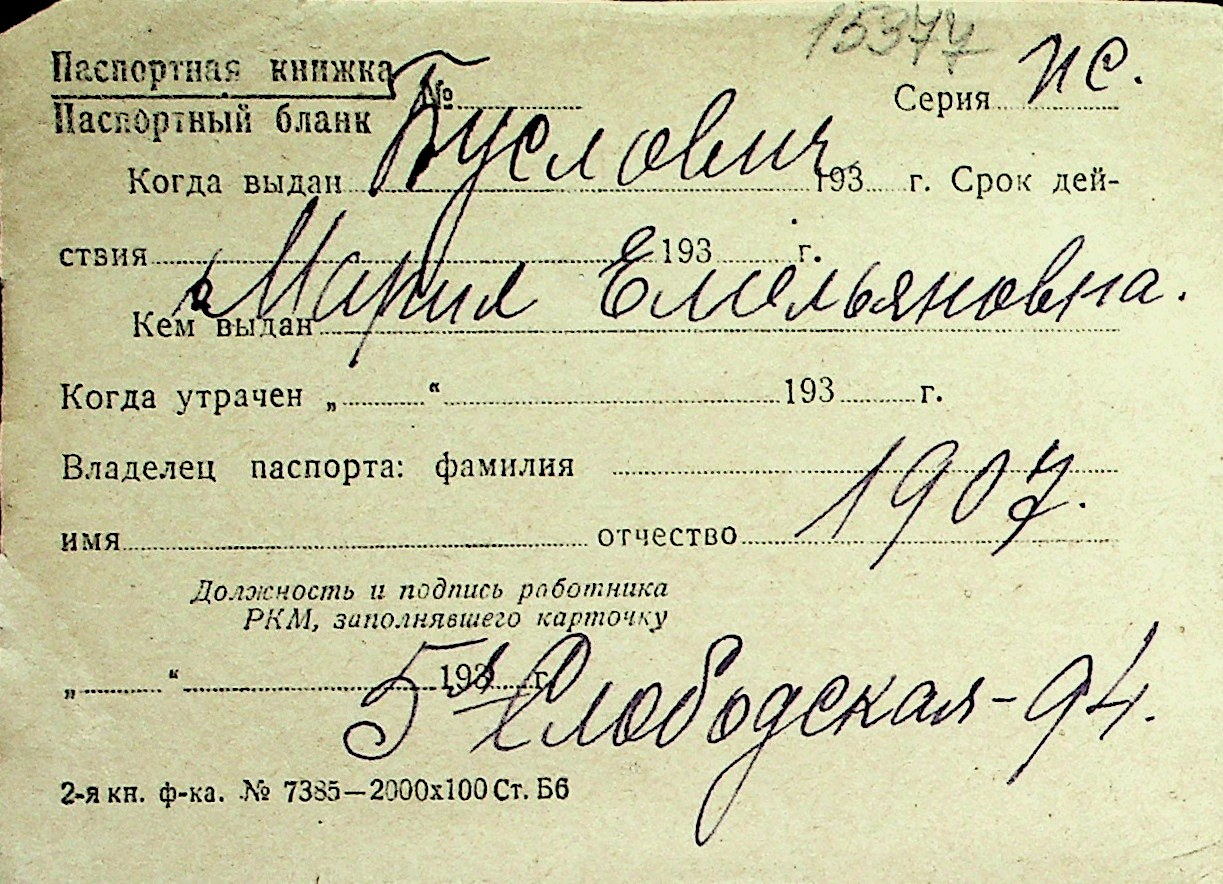 15377
Паспортная книжка № Серия ис.
Паспортный бланк
Буслович
Когда выдан 193 г. Срок дей-
ствия 193 г.
Мария Емельяновна.
Кем выдан
Когда утрачен „ “ 193 г.
Владелец паспорта: фамилия
1907.
имя отчество
Должность и подпись работника
РКМ, заполнявшего карточку
„ “ 193 г.
5я Слободская-94.
2-я кн. ф-ка. № 7385—2000х100 Ст. Б6